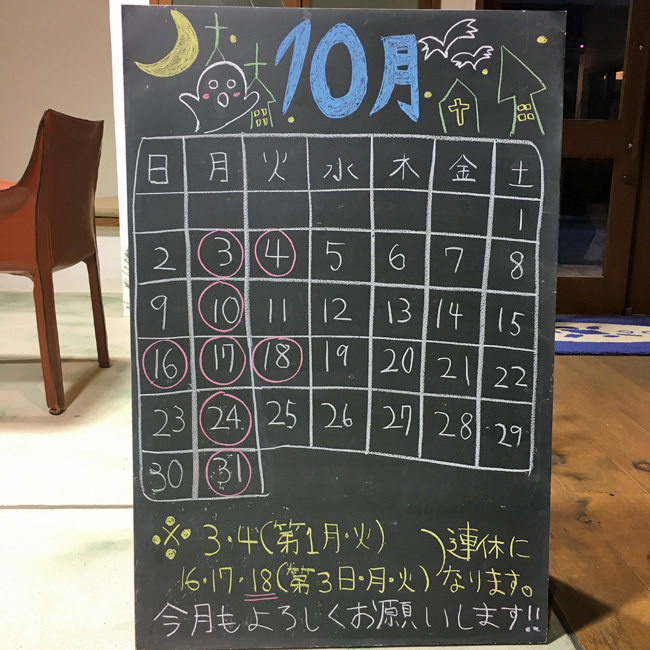 10月
日 月 火 水 木 金 土
1
2 3 4 5 6 7 8
9 10 11 12 13 14 15
16 17 18 19 20 21 22
23 24 25 26 27 28 29
30 31
※ 3・4(第1月・火)
16・17・18(第3日・月・火)
)連休に
なります。
今月もよろしくお願いします!!